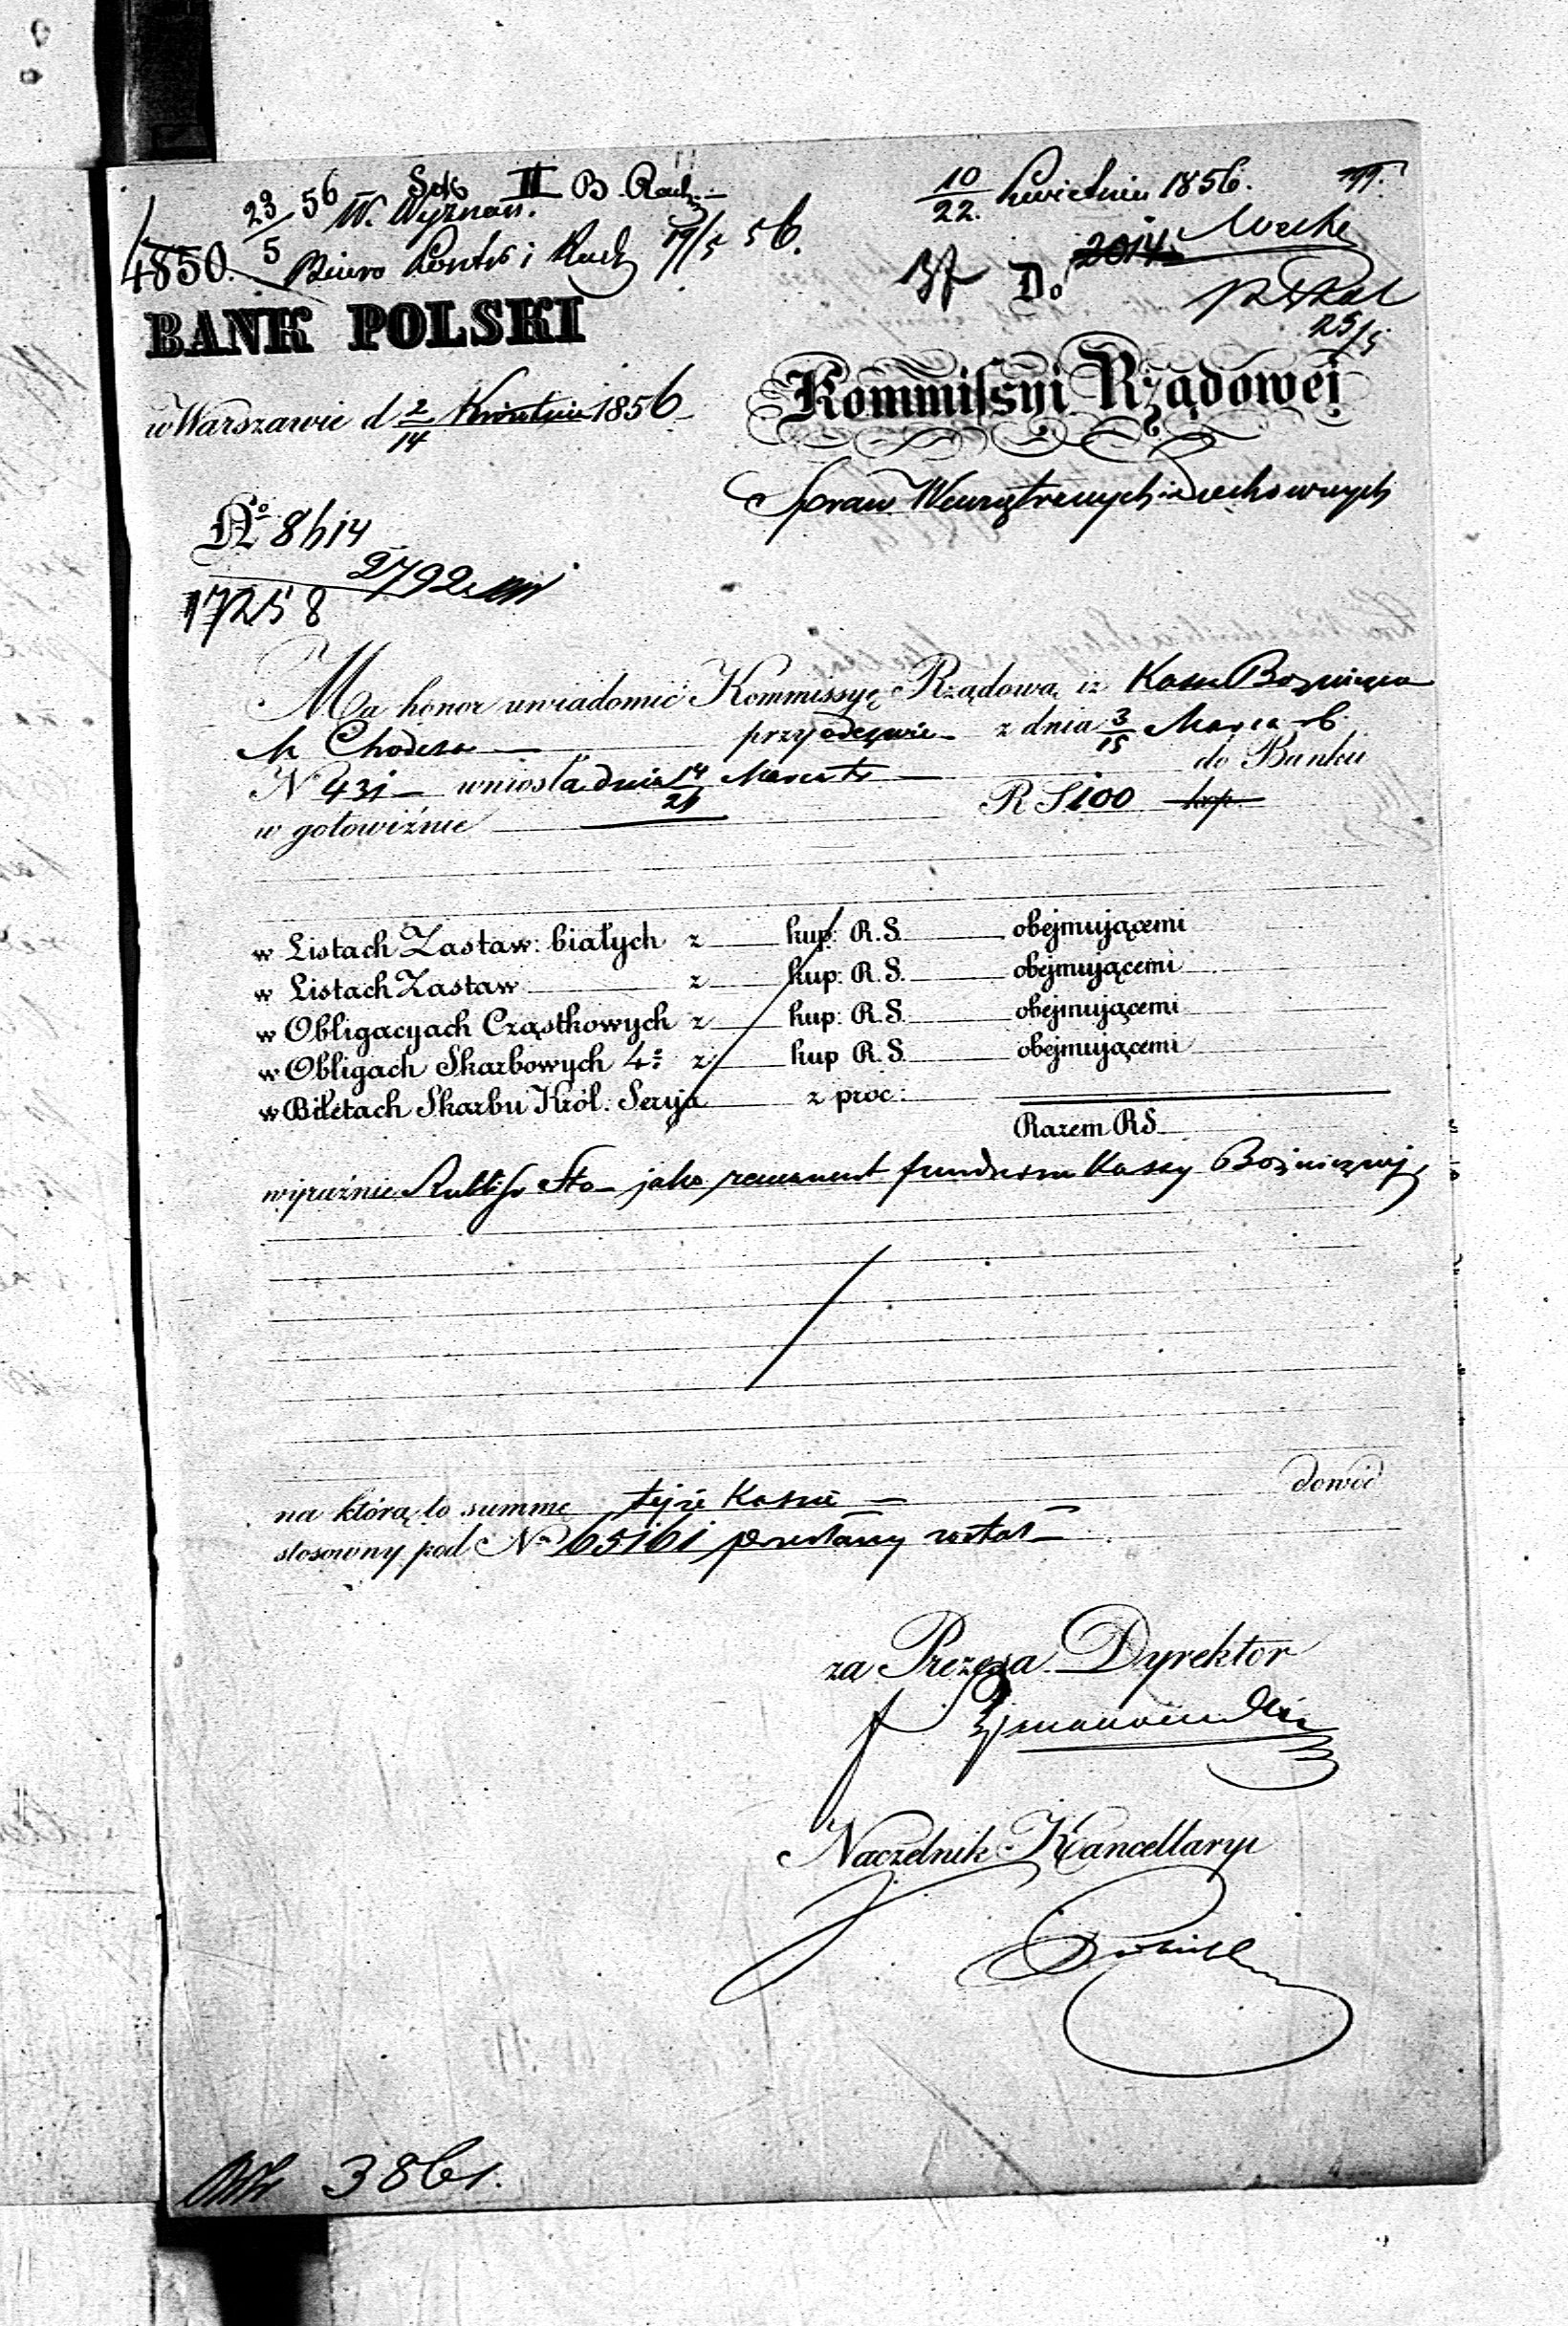 10/22 Kwietnia 1856.
23/5 56 W. Wyznań. II B. Rach.
4850. Biuro Kontr i Rach 19/5 56.
2014
Do
25/5
BANK POLSKI
Kommissyi Rządowej
w Warszawie d 2/14 Kwietnia 1856
Spraw Wewnętrznych i Duchownych
No 8614
17258 2792
Ma honor uwiadomić Kommissyę Rządową iż Kassa Bożnicza
M Chodcza — przy odezwie z dnia 3/15 Marca rb.
No 431 — wniosła dnia Marca tr — do Banku
w gotowiźnie R S 100 kop.
w Listach Zastaw: białych z kup: R.S. obejmującemi
w Listach Zastaw z kup: R.S. obejmującemi
w Obligacyach Cząstkowych z kup: R.S. obejmującemi
w Obligach Skarbowych 4: z kup R.S. obejmującemi
w Biletach Skarbu Król. Serya z proc:
Razem RS.
wyraźnie Rubli sr Sto — jako remanent funduszu Kassy Bożniczej
na którą to summę tejże Kassie — dowód
stosowny pod No 65161 przesłany został —
za Prezesa Dyrektor
Naczelnik Kancellaryi
3861.